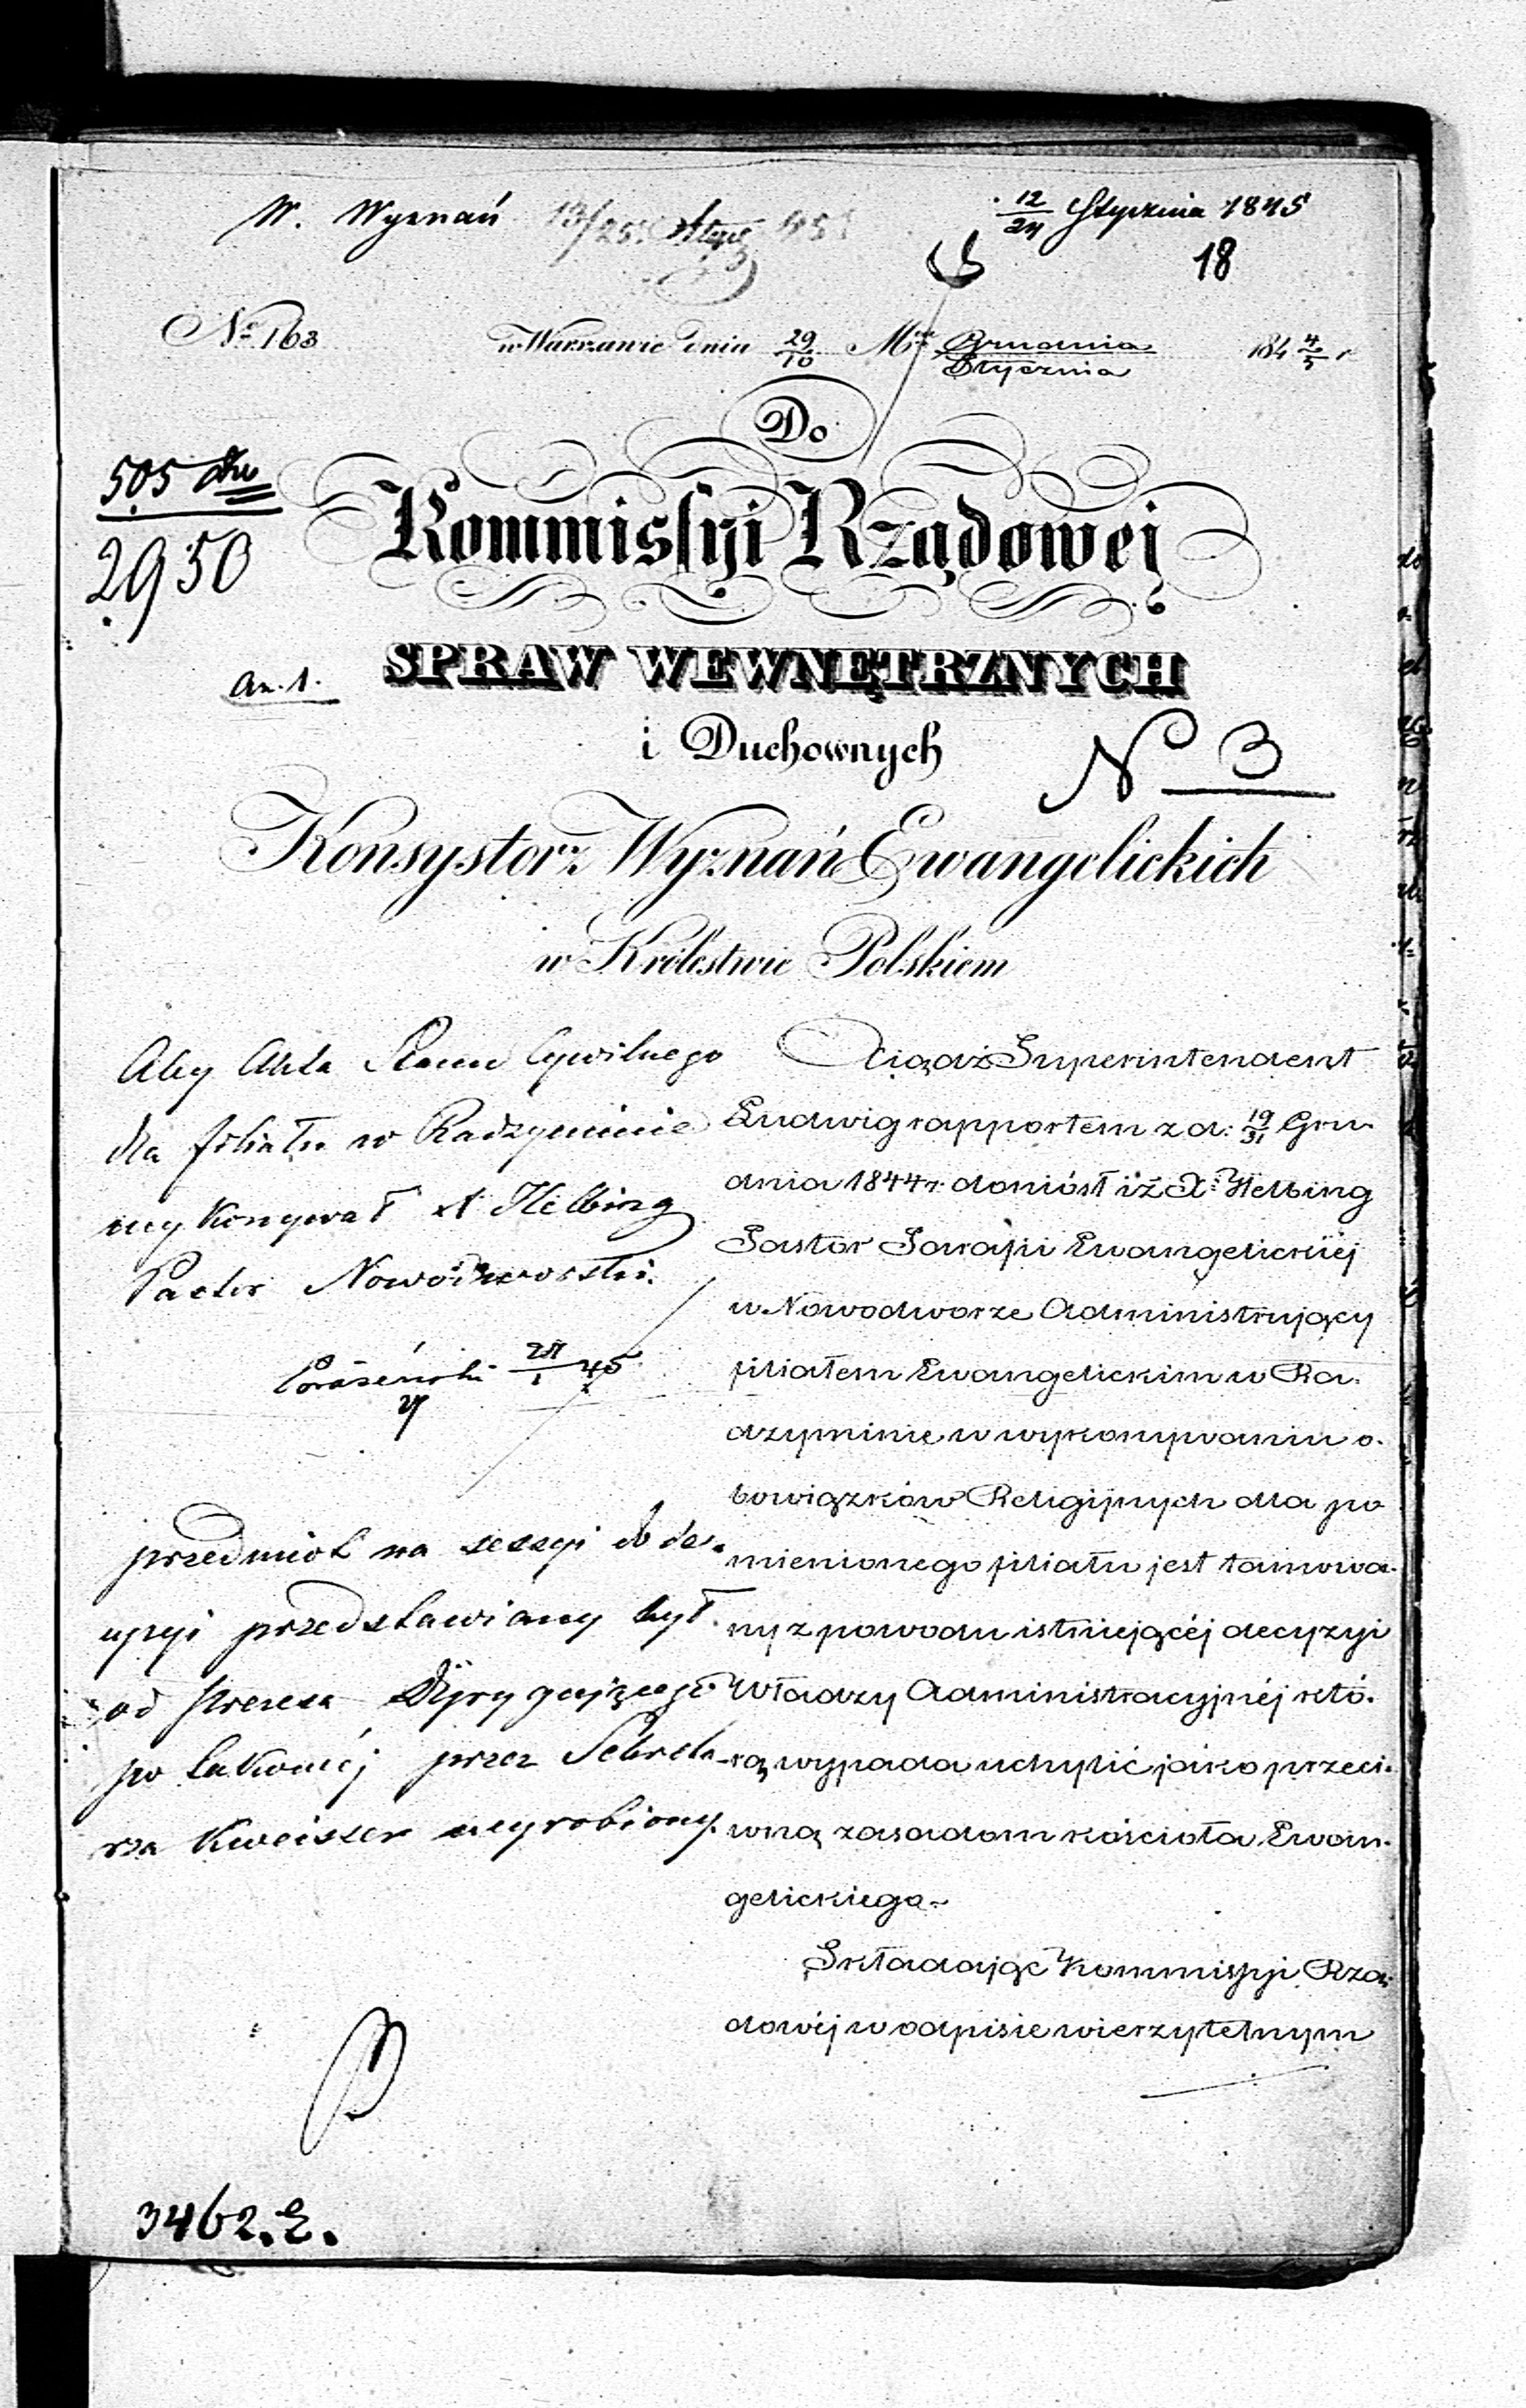 W. Wyznań 13/25 Stycz 45
12/24 Stycznia 1845
18
No 163 w Warszawie dnia 29/10 Mca Grudnia/Stycznia 184 4/5 r
Do
505
2950
Kommissyi Rządowej
an. 1.
SPRAW WEWNĘTRZNYCH
i Duchownych
N 3
Konsystorz Wyznań Ewangelickich
w Królestwie Polskiem
Aby Akta Stanu Cywilnego
dla filiału w Radzyminie
wykonywał X Helbing
Pastor Nowodworski.
28/1 45
przedmiot na sessyi do de-
cyzyi przedstawiany był
od Prezesa Dyrygującego
po takowéj przez Sekreta-
rza Kweisser wyrobiony.
Xiądz Superintendent
Ludwig rapportem z d: 19/31 Gru-
dnia 1844 r. doniósł iż X: Helbing
Pastor Parafii Ewangelickiéj
w Nowodworze Administrujący
filiałem Ewangelickim w Ra-
dzyminie w wykonywaniu o-
bowiązków Religijnych dla po
mienionego filiału jest tamowa-
ny z powodu istniejącéj decyzyi
Władzy Administracyjnéj któ-
rą wypada uchylić jako przeci-
wną zasadom kościoła Ewan-
gelickiego.
Składając Kommissyi Rzą-
dowéj w odpisie wierzytelnym
3462. E.